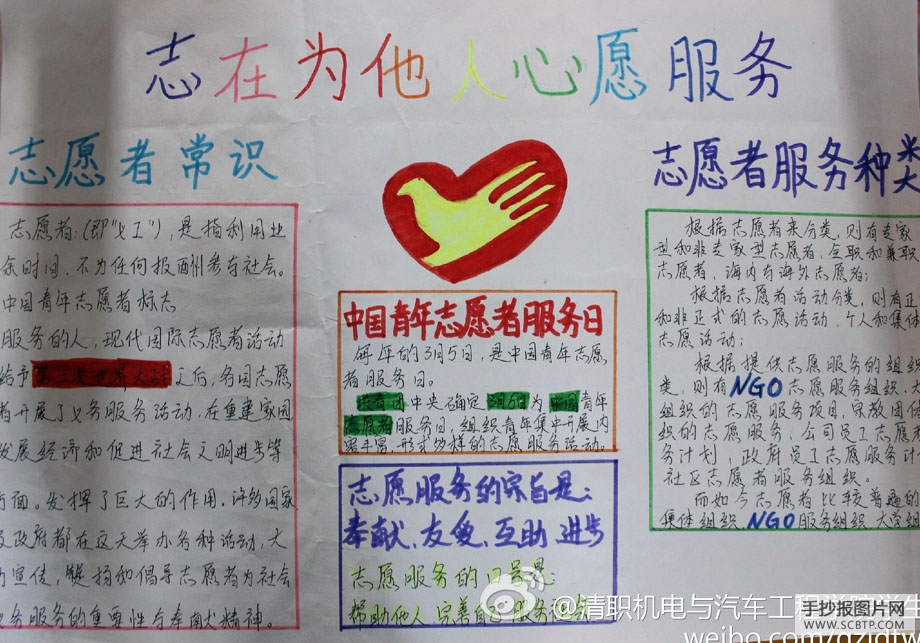 志在为他人心愿服务
志愿者常识
志愿者:(即"义工"),是指利用业
余时间,不为任何报酬参与社会。
中国青年志愿者标志
服务的人,现代国际志愿者活动
给予第二次世界大战之后,各国志愿
者开展了义务服务活动,在重建家园
发展经济和促进社会文明进步等
方面。发挥了巨大的作用.许多国家
及政府都在这天举办各种活动,大
力宣传,赞扬和倡导志愿者为社会
义务服务的重要性与奉献精神。
中国青年志愿者服务日
每年的3月5日,是中国青年志愿
者服务日。
中央确定3月5日为中国青年
志愿者服务日,组织青年集中开展内
容丰富,形式多样的志愿服务活动.
志愿服务的宗旨是:
奉献、友爱、互助、进步
志愿服务的口号是
帮助他人 完善自己 服务社会
志愿者服务种类
根据志愿者来分类,则有专家
型和非专家型志愿者,全职和兼职
志愿者,海内有海外志愿者;
根据志愿者活动分类,则有正
和非正式的志愿活动,个人和集体
志愿活动;
根据提供志愿服务的组织
类,则有NGO志愿服务组织
组织的志愿服务项目,宗教团体
织的志愿服务,公司员工志愿者
务计划,政府员工志愿服务计
社区志愿者服务组织。
而如今志愿者比较普遍的
集体组织 NGO服务组织
@清职机电与汽车工程学院学生
weibo.com/
手抄报图片网
WWW.SCBTP.COM